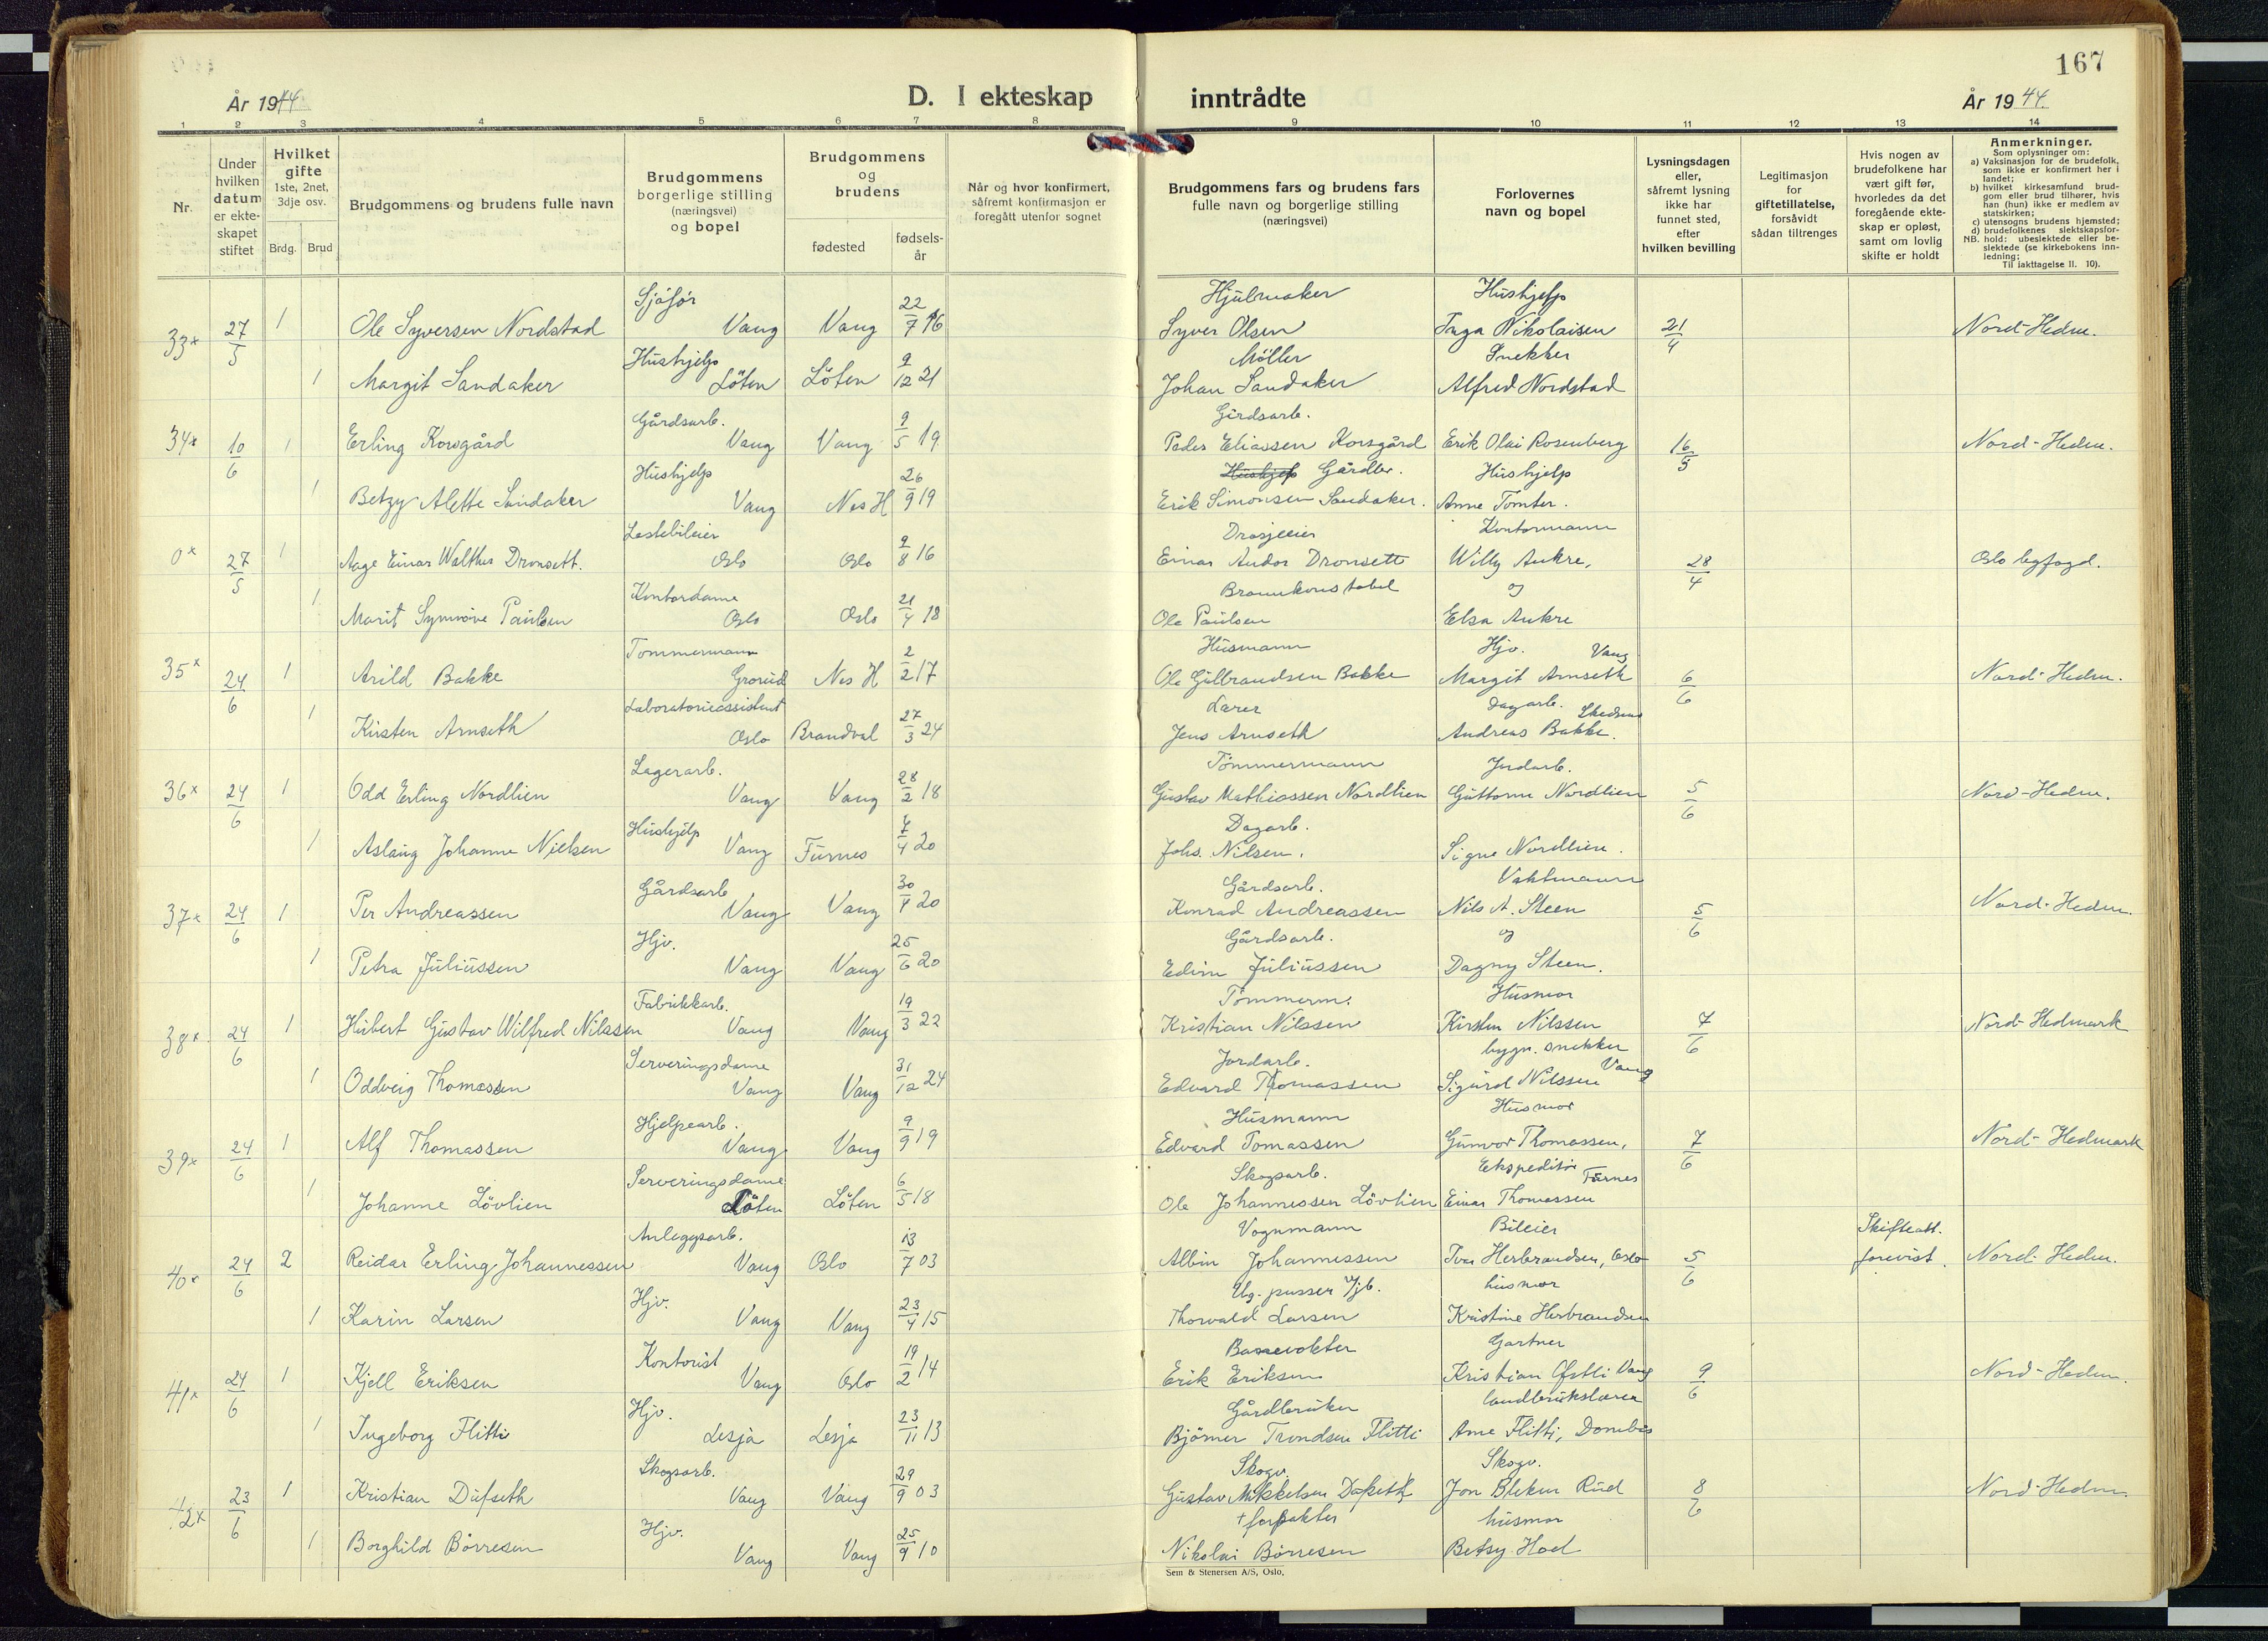 167
År 1944
D. I ekteskap inntrådte
År 1944
1 2 3 4 5 6 7 8 9 10 11 12 13 14
Nr.
Under hvilken datum er ekte-skapet stiftet
Hvilket gifte 1ste, 2net, 3dje osv.
Brdg. Brud
Brudgommens og brudens fulle navn
Brudgommens borgerlige stilling (næringsvei) og bopel
Brudgommens og brudens
fødested fødsels-år
Når og hvor konfirmert, såfremt konfirmasjon er foregått utenfor sognet
Brudgommens fars og brudens fars fulle navn og borgerlige stilling (næringsvei)
Forlovernes navn og bopel
Lysningsdagen eller, såfremt lysning ikke har funnet sted, efter hvilken bevilling
Legitimasjon for giftetillatelse, forsåvidt sådan tiltrenges
Hvis nogen av brudefolkene har vært gift før, hvorledes da det foregående ekte-skap er opløst, samt om lovlig skifte er holdt
Anmerkninger.
Som oplysninger om:
a) Vaksinasjon for de brudefolk, som ikke er konfirmert her i landet;
b) hvilket kirkesamfund brud-gom eller brud tilhører, hvis han (hun) ikke er medlem av statskirken;
c) utensogns brudens hjemsted;
d) brudefolkenes slektskapsfor-hold: ubeslektede eller be-slektede (se kirkebokens inn-ledning;
NB. Til iakttagelse II. 10).
Sjåfør Hjulmaker Hushjelp
33x 27/5 1 Ole Syversen Nordstad Vang Vang 22/7 16 Syver Olsen Inga Nikolaisen 21/4 Nord-Hedm.
Hushjelp Møller Snekker
1 Margit Sandaker Löten Löten 9/12 21 Johan Sandaker Alfred Nordstad
Gårdsarb. Gårdsarb.
34x 10/6 1 Erling Korsgård Vang Vang 9/5 19 Peder Eliassen Korsgård Erik Olai Rosenberg 16/5 Nord-Hedm.
Hushjelp Hushjelp Gårdbr. Hushjelp
1 Betzy Alette Sandaker Vang Nes H 26/9 19 Erik Simonsen Sandaker. Anne Tomter.
Lastebileier Drosjeeier Kontormann
0x 27/5 1 Aage Einar Walther Dronsett. Oslo Oslo 9/8 16 Einar Andor Dronsett Willy Aukre, 28/4 Oslo byfogd.
Kontordame Brannkonstabel og
1 Marit Synnöve Paulsen Oslo Oslo 21/4 18 Ole Paulsen Elsa Aukre
Tømmermann Husmann Hjv. Vang
35x 24/6 1 Arild Bakke Grorud Nes H 2/2 17 Ole Gulbrandsen Bakke Margit Arnseth 6/6 Nord-Hedm.
Laboratorieassistent Lærer Dagarb. Skedsmo
1 Kirsten Arnseth Oslo Brandval 27/3 24 Jens Arnseth Andreas Bakke.
Lagerarb. Tømmermann Jordarb.
36x 24/6 1 Odd Erling Nordlien Vang Vang 28/2 18 Gustav Mathiassen Nordlien Guttorm Nordlien 5/6 Nord-Hedm.
Hushjelp Dagarb.
1 Aslaug Johanne Nielsen Vang Furnes 4 20 Johs. Nilsen. Signe Nordlien.
Gårdsarb Gårdsarb. Vaktmann
37x 24/6 1 Per Andreassen Vang Vang 30 20 Konrad Andreassen Nils A. Steen 5/6 Nord-Hedm.
Hjv. Gårdsarb. og
1 Petra Juliussen Vang Vang 25/6 20 Edvin Juliussen Dagny Steen.
Fabrikkarb. Tømmerm. Husmor
38x 24/6 1 Hubert Gustav Wilfred Nilssen Vang Vang 19/3 22 Kristian Nilssen Kirsten Nilssen 7/6 Nord-Hedmark
Serveringsdame Jordarb. bygn. snekker Vang
1 Oddveig Thomassen Vang Vang 31/12 24 Edvard Thomassen Sigurd Nilssen
Hjelpearb. Husmann Husmor
39x 24/6 1 Alf Thomassen Vang Vang 9/9 19 Edvard Tomassen Gunvor Thomassen, 7/6 Nord-Hedmark
Serveringsdame Skogsarb. Ekspeditör Furnes
1 Johanne Lövlien Löten Löten 6/5 18 Ole Johannessen Lövlien Einar Thomassen
Anleggsarb. Vognmann Bileier Skifteatt.
40x 24/6 2 Reidar Erling Johannessen Vang Oslo 13/7 03 Albin Johannessen Ivar Herbrandsen, Oslo 5/6 forevist. Nord-Hedm.
Hjv. Vg. pusser Jjb. husmor
1 Karin Larsen Vang Vang 23/4 15 Thorvald Larsen Kristine Herbrandsen
Kontorist Gartner
41x 24/6 1 Kjell Eriksen Vang Oslo 19/2 14 Erik Eriksen Kristian Ofstli Vang 9/6 Nord-Hedm.
Hjv. Gårdbruker landbrukslærer
1 Ingeborg Flitti Lesja Lesja 23/11 13 Björner Trondsen Flitti Arne Flitti, Dombås
Skogsarb. Skogv. Skogv.
42x 23/6 1 Kristian Dufseth Vang Vang 29/9 03 Gustav Mikkelsen Dufseth Jon Bleken Rud 8/6 Nord-Hedm.
Hjv. + forpakter husmor
1 Borghild Börresen Vang Vang 25/9 10 Nikolai Börresen Betsy Hoel
Sem & Stenersen A/S, Oslo.